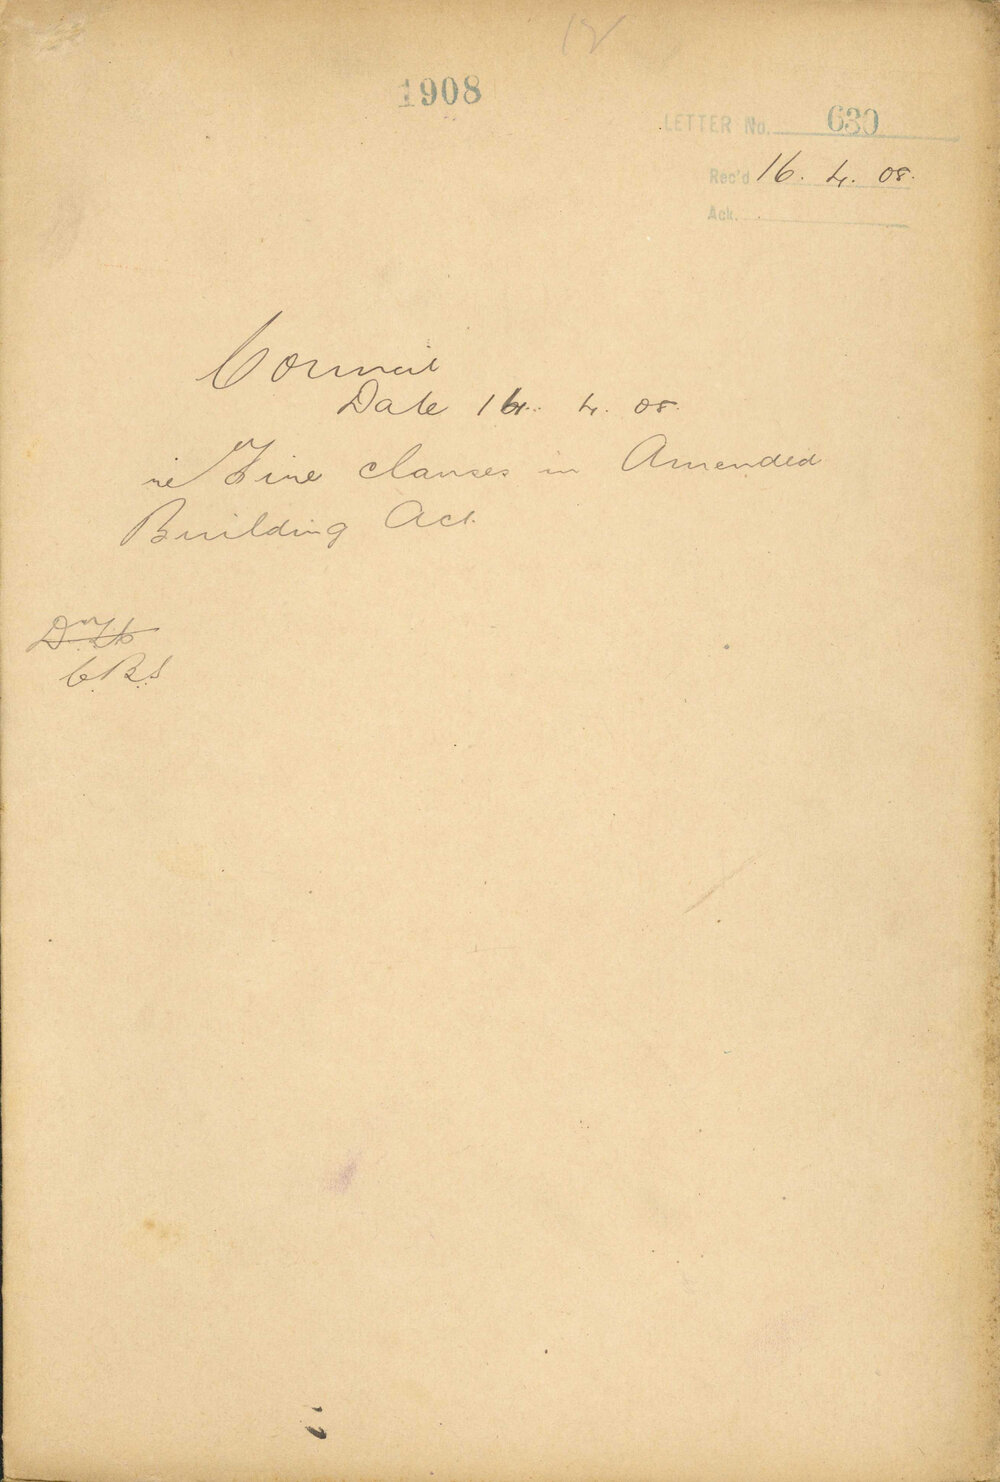 12
1908
LETTER No. 630
Rec'd 16. 4. 08.
Ack.
Council
Date 14. 4. 08.
re Fire clauses in Amended
Building Act.
C.B.S